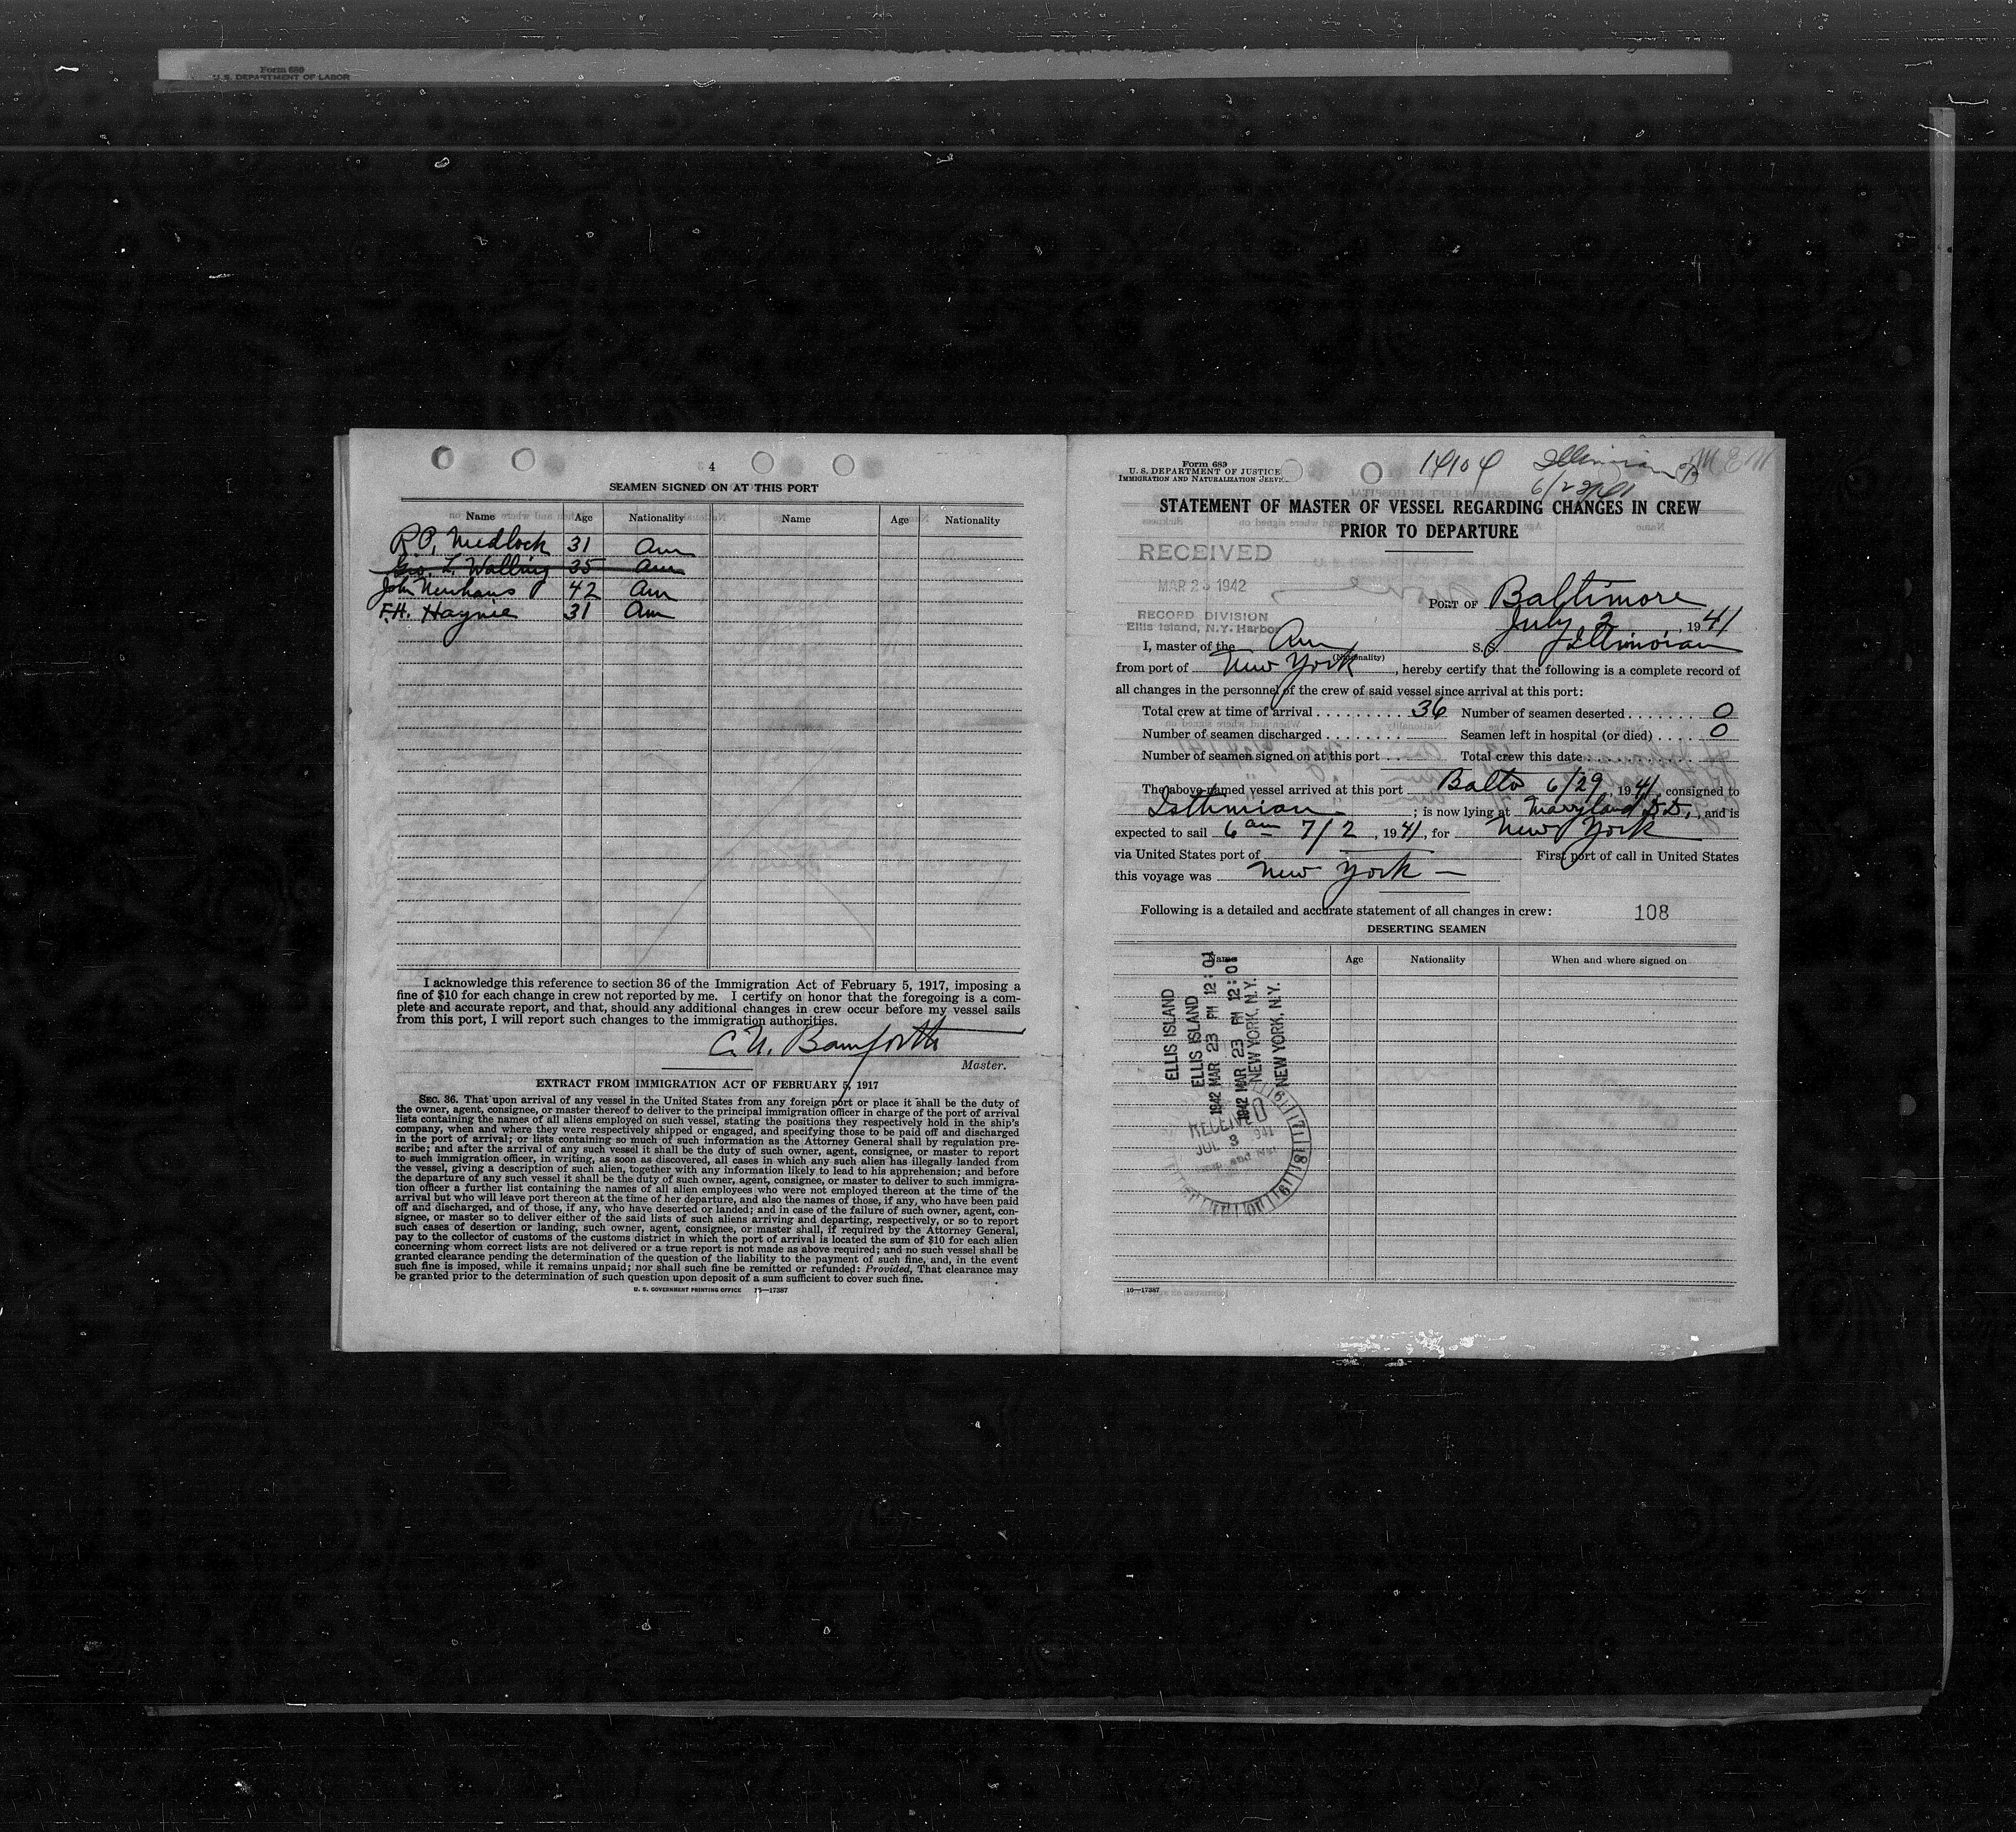 Form 689
U. S. DEPARTMENT OF LABOR
4
SEAMEN SIGNED ON AT THIS PORT
Name Age Nationality Name Age Nationality
R.P. Medlock 31 Am
Geo. L. Walling 35 Am
John Neuhaus 42 Am
F.H. Haynie 31 Am
I acknowledge this reference to section 36 of the Immigration Act of February 5, 1917, imposing a
fine of $10 for each change in crew not reported by me. I certify on honor that the foregoing is a com-
plete and accurate report, and that, should any additional changes in crew occur before my vessel sails
from this port, I will report such changes to the immigration authorities.
C. N. Bamforth
Master.
EXTRACT FROM IMMIGRATION ACT OF FEBRUARY 5, 1917
SEC. 36. That upon arrival of any vessel in the United States from any foreign port or place it shall be the duty of
the owner, agent, consignee, or master thereof to deliver to the principal immigration officer in charge of the port of arrival
lists containing the names of all aliens employed on such vessel, stating the positions they respectively hold in the ship's
company, when and where they were respectively shipped or engaged, and specifying those to be paid off and discharged
in the port of arrival; or lists containing so much of such information as the Attorney General shall by regulation pre-
scribe; and after the arrival of any such vessel it shall be the duty of such owner, agent, consignee, or master to report
to such immigration officer, in writing, as soon as discovered, all cases in which any such alien has illegally landed from
the vessel, giving a description of such alien, together with any information likely to lead to his apprehension; and before
the departure of any such vessel it shall be the duty of such owner, agent, consignee, or master to deliver to such immigra-
tion officer a further list containing the names of all alien employees who were not employed thereon at the time of the
arrival but who will leave port thereon at the time of her departure, and also the names of those, if any, who have been paid
off and discharged, and of those, if any, who have deserted or landed; and in case of the failure of such owner, agent, con-
signee, or master so to deliver either of the said lists of such aliens arriving and departing, respectively, or so to report
such cases of desertion or landing, such owner, agent, consignee, or master shall, if required by the Attorney General,
pay to the collector of customs of the customs district in which the port of arrival is located the sum of $10 for each alien
concerning whom correct lists are not delivered or a true report is not made as above required; and no such vessel shall be
granted clearance pending the determination of the question of the liability to the payment of such fine, and, in the event
such fine is imposed, while it remains unpaid; nor shall such fine be remitted or refunded: Provided, That clearance may
be granted prior to the determination of such question upon deposit of a sum sufficient to cover such fine.
U. S. GOVERNMENT PRINTING OFFICE 16—17387
Form 689
U. S. DEPARTMENT OF JUSTICE
IMMIGRATION AND NATURALIZATION SERVI
Illinoian
STATEMENT OF MASTER OF VESSEL REGARDING CHANGES IN CREW
PRIOR TO DEPARTURE
RECEIVED
MAR 23 1942
RECORD DIVISION
Ellis Island, N.Y. Harbor
PORT OF Baltimore
July 2, 1941
I, master of the Am S. S. Illinoian
(Nationality)
from port of New York, hereby certify that the following is a complete record of
all changes in the personnel of the crew of said vessel since arrival at this port:
Total crew at time of arrival 36 Number of seamen deserted 0
Number of seamen discharged Seamen left in hospital (or died) 0
Number of seamen signed on at this port Total crew this date
The above-named vessel arrived at this port Balto 6/29, 1941, consigned to
Isthmian; is now lying at Maryland D.D., and is
expected to sail 6 am 7/2, 1941, for New York
via United States port of First port of call in United States
this voyage was New York —
Following is a detailed and accurate statement of all changes in crew: 108
DESERTING SEAMEN
Name Age Nationality When and where signed on
ELLIS ISLAND
ELLIS ISLAND
1942 MAR 23 PM 12:01
1942 MAR 23 PM 12:01
NEW YORK, N.Y.
NEW YORK, N.Y.
RECEIVED
JUL 3 1941
16—17387